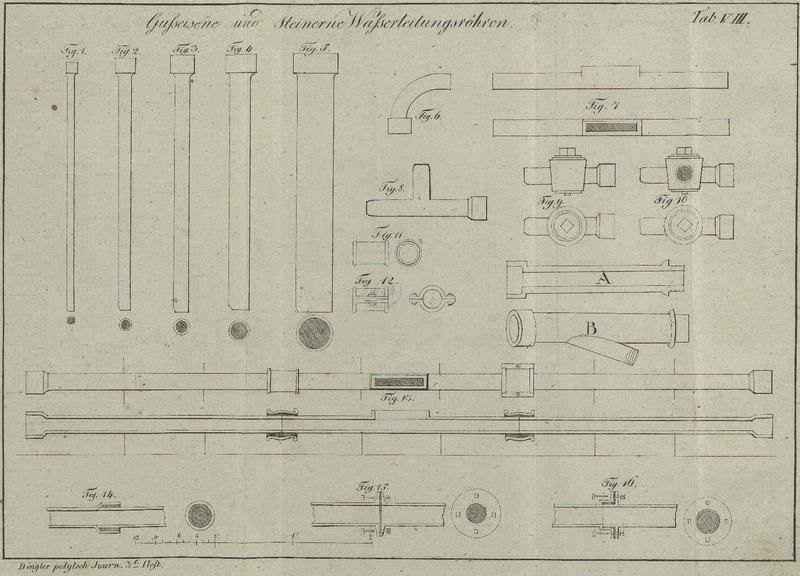 Gusseiserne und Steinerne Wasserleitungsröhren.
Tab VIII.
Fig. 1.
Fig. 2.
Fig. 3.
Fig. 4.
Fig. 5.
Fig. 6.
Fig. 7
Fig. 8.
Fig. 9.
Fig 10.
Fig. 11.
Fig 12.
A
B
Fig. 13.
Fig. 14.
Fig. 15.
Fig. 16.
12 9 6 3
1'
2
Dingler polytech Journ. 3s. Heft.